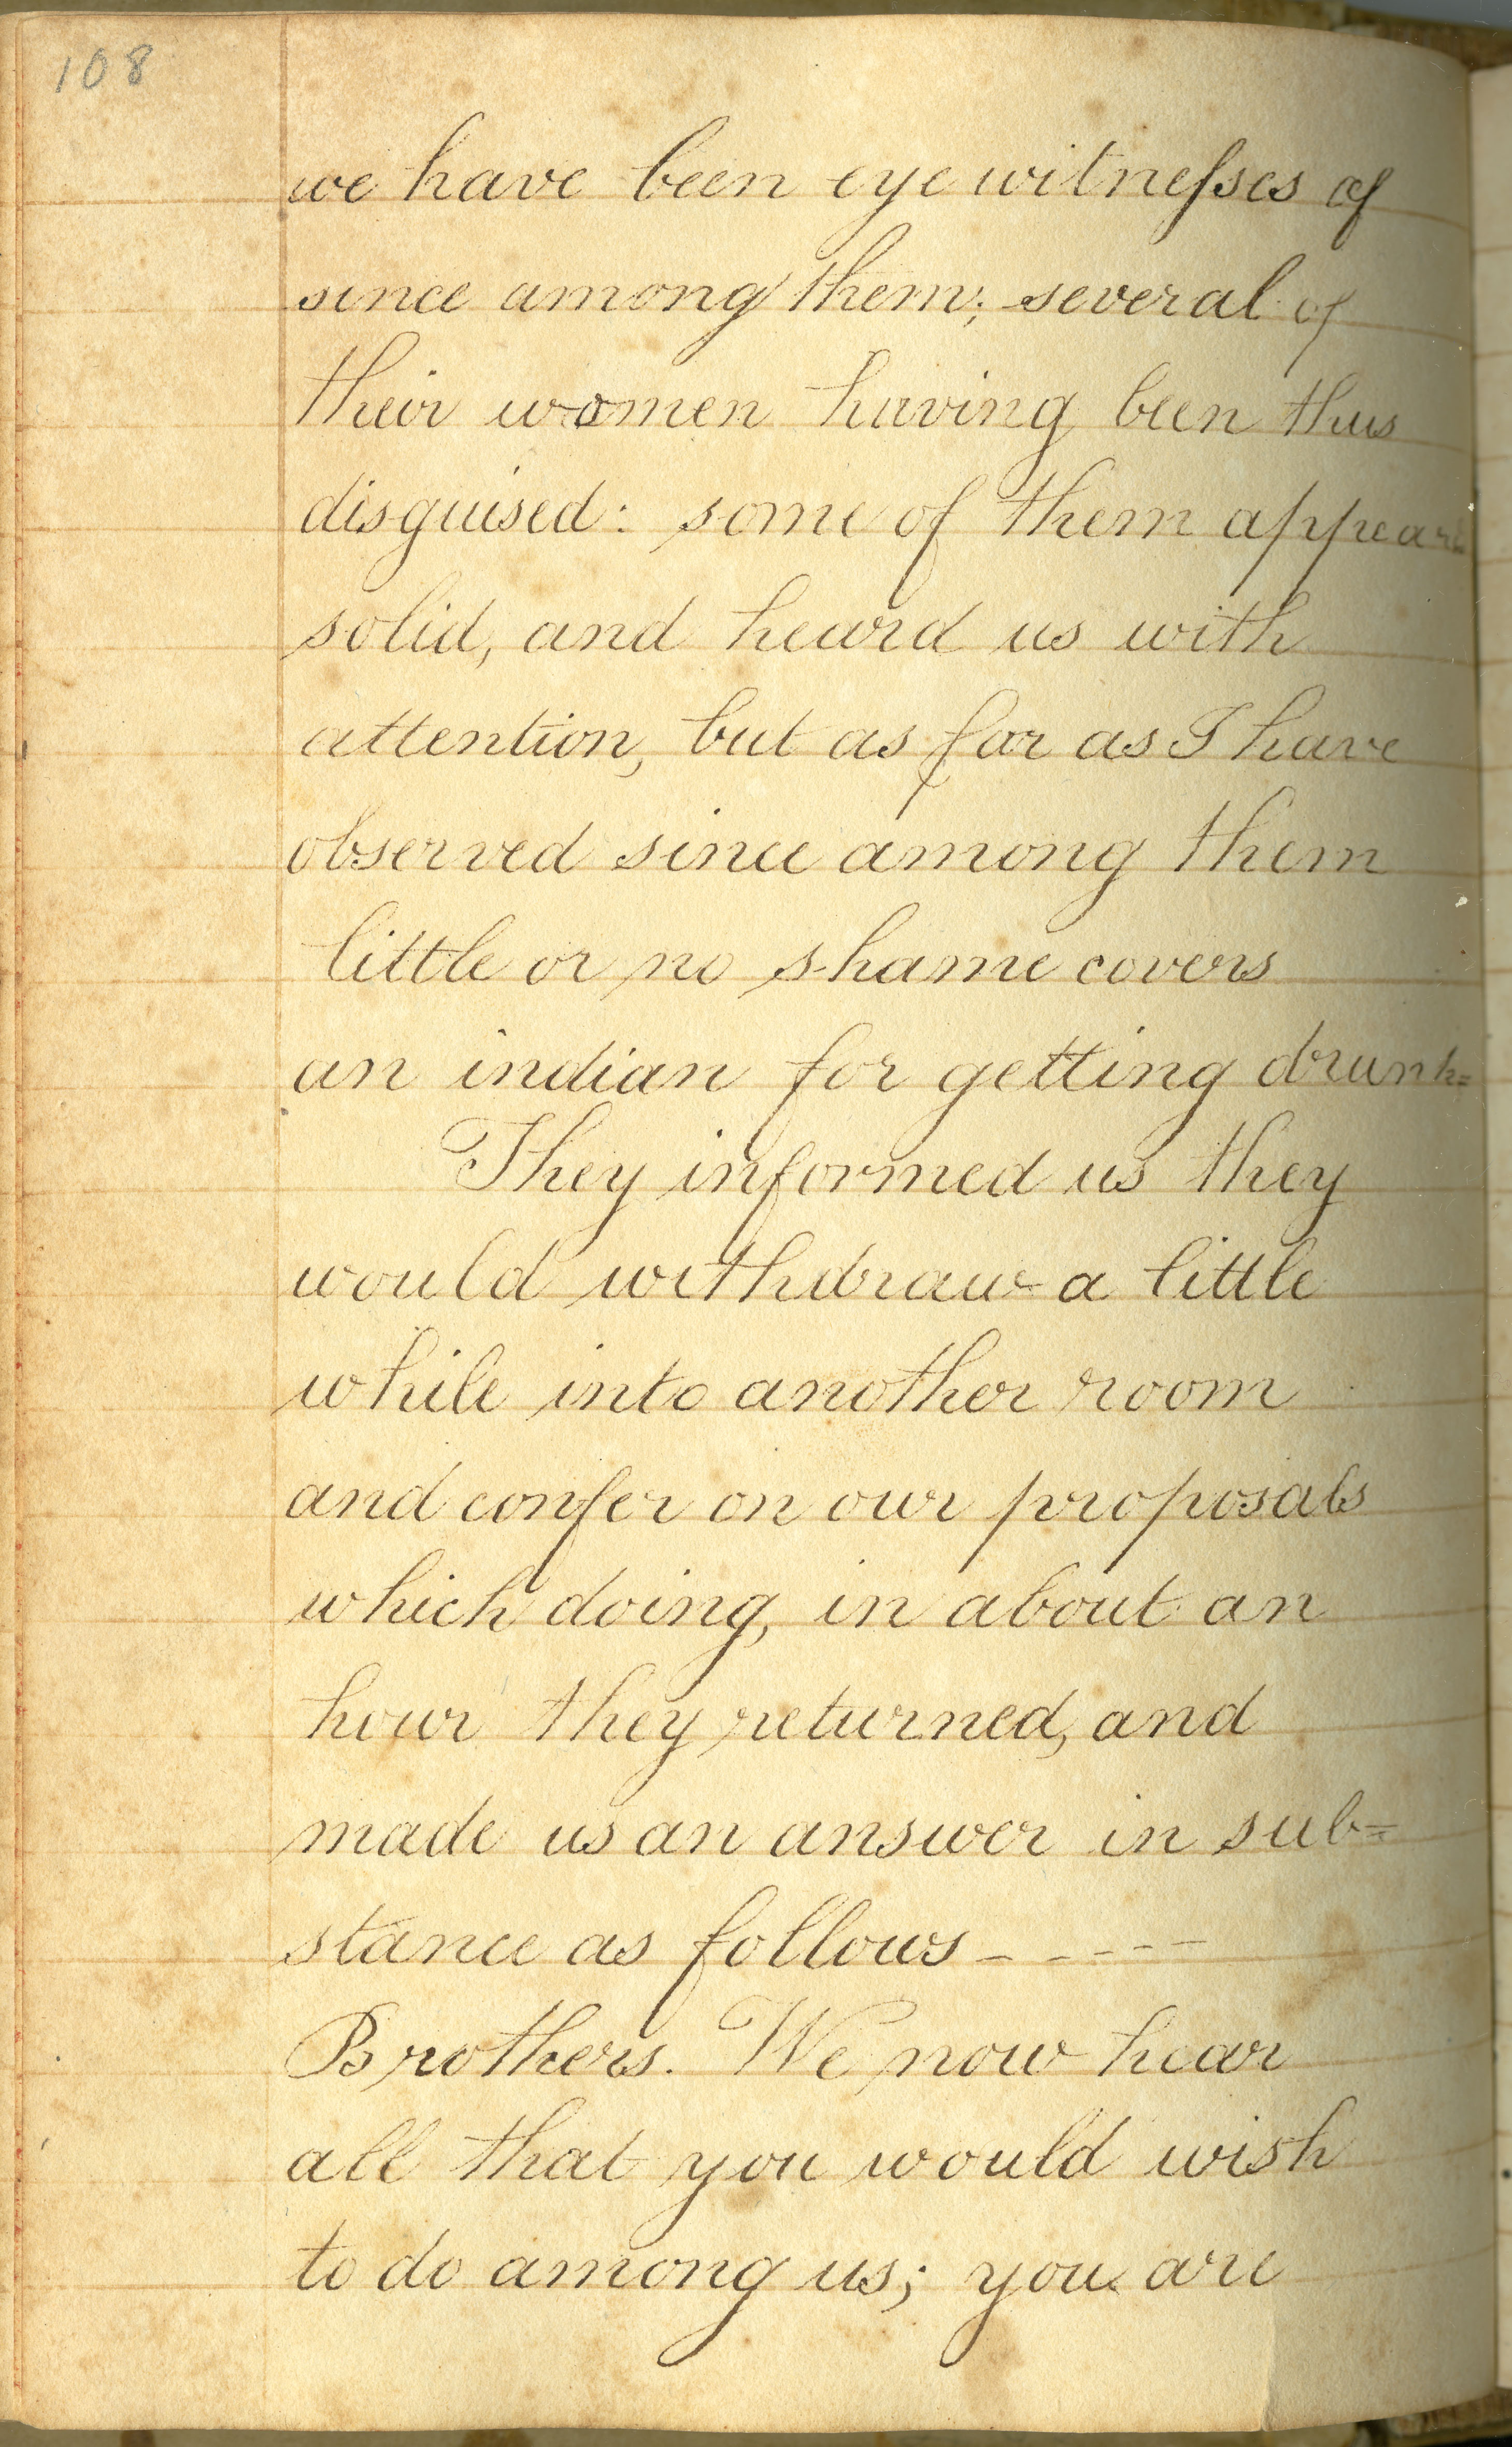 108
we have been eye witneſses of
since among them; several of
their women having been thus
disguised: some of them appeard
solid, and heard us with
attention, but as far as I have
observed since among them
little or no shame covers
an indian for getting drunk=
They informed us they
would withdraw a little
while into another room
and confer on our proposals
which doing, in about an
hour they returned, and
made us an answer in sub=
stance as follows - - - - -
Brothers. We now hear
all that you would wish
to do among us; you are